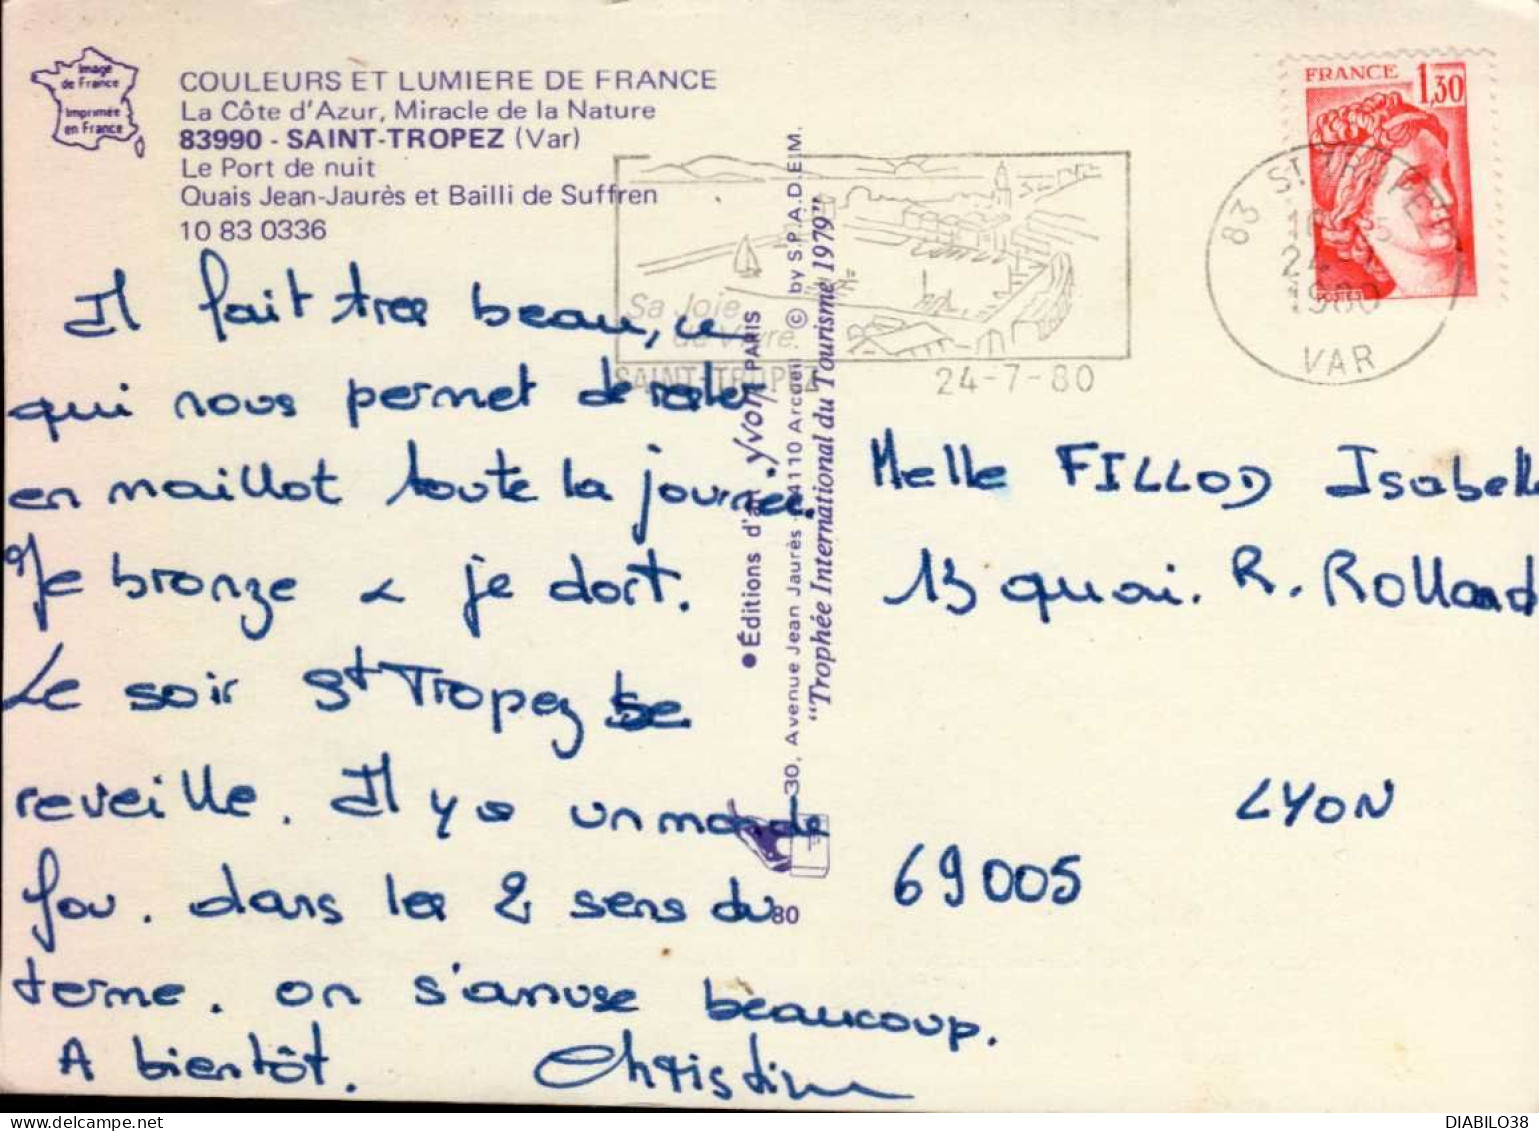 Image
de France
Imprimée
en France
COULEURS ET LUMIERE DE FRANCE
La Côte d'Azur, Miracle de la Nature
83990 - SAINT-TROPEZ (Var)
Le Port de nuit
Quais Jean-Jaurès et Bailli de Suffren
10 83 0336
Il fait tres beau, ce
qui nous permet de rester
en maillot toute la journée.
Je bronze & je dort.
Le soir St Tropez se
reveille. Il y a un monde
fou. dans les 2 sens du
terme. on s'amuse beaucoup.
A bientôt. Christine
●Éditions d'art yvon PARIS
30, Avenue Jean Jaurès 94110 Arcueil © by S.P.A.D.E.M.
"Trophée International du Tourisme 1979"
80
Sa Joie
de Vivre
SAINT-TROPEZ 24-7-80
FRANCE 1,30
POSTES
83 ST TROPEZ
24
1980
VAR
Melle FILLOD Isabelle
13 quai. R. Rolland
LYON
69005
DIABILO38